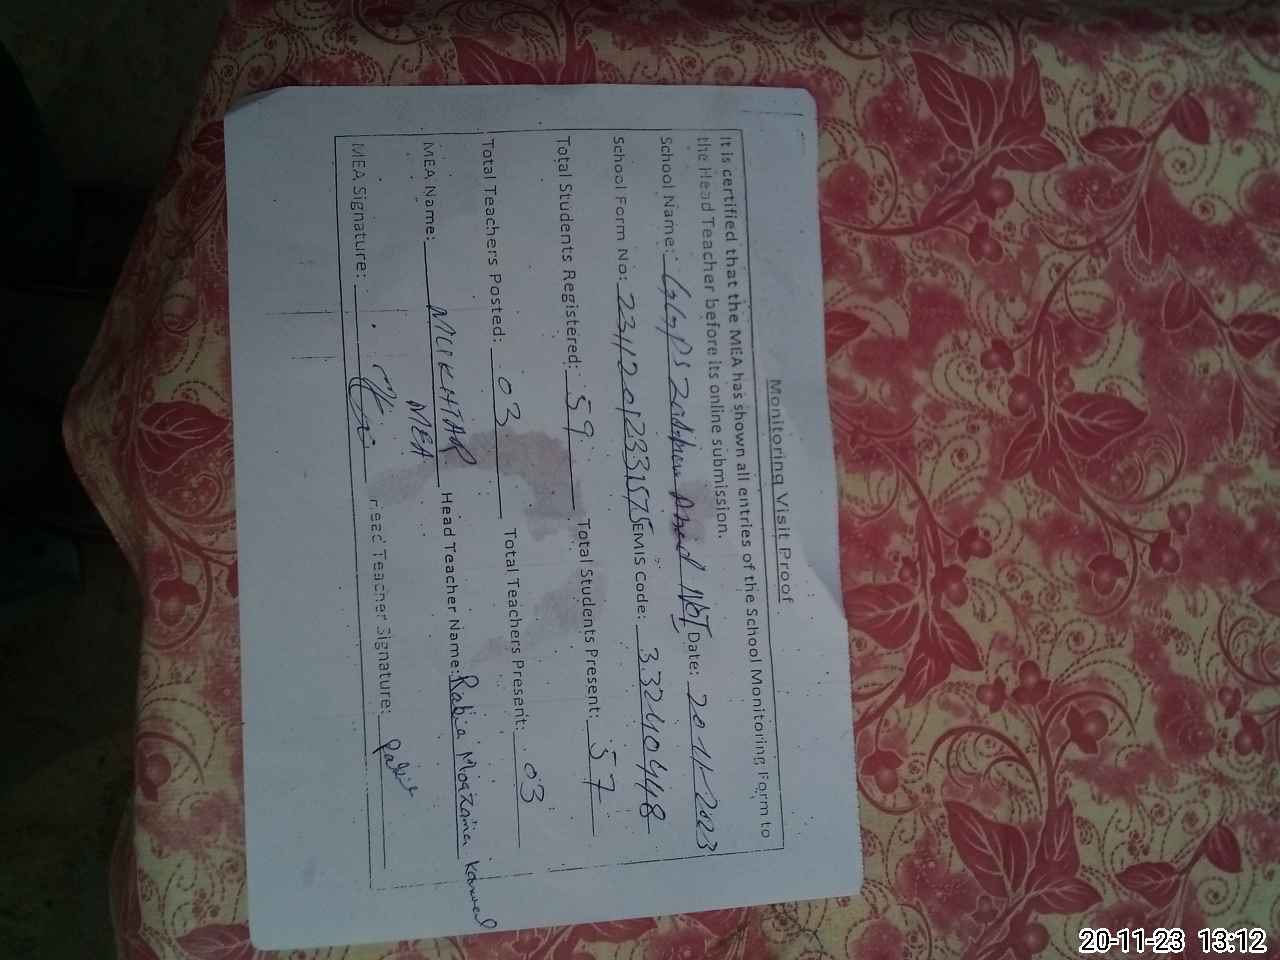 Monitoring Visit Proof
It is certified that the MEA has shown all entries of the School Monitoring Form to
the Head Teacher before its online submission.
School Name: GGPS Date: 20-11-2023
School Form No: EMIS Code: 33240448
Total Students Registered: 59 Total Students Present: 57
Total Teachers Posted: 03 Total Teachers Present: 03
MEA Name: MUKHTAR Head Teacher Name: Rabia Moazama Kanwal
MEA
MEA Signature: Head Teacher Signature: Rabia
20-11-23 13:12